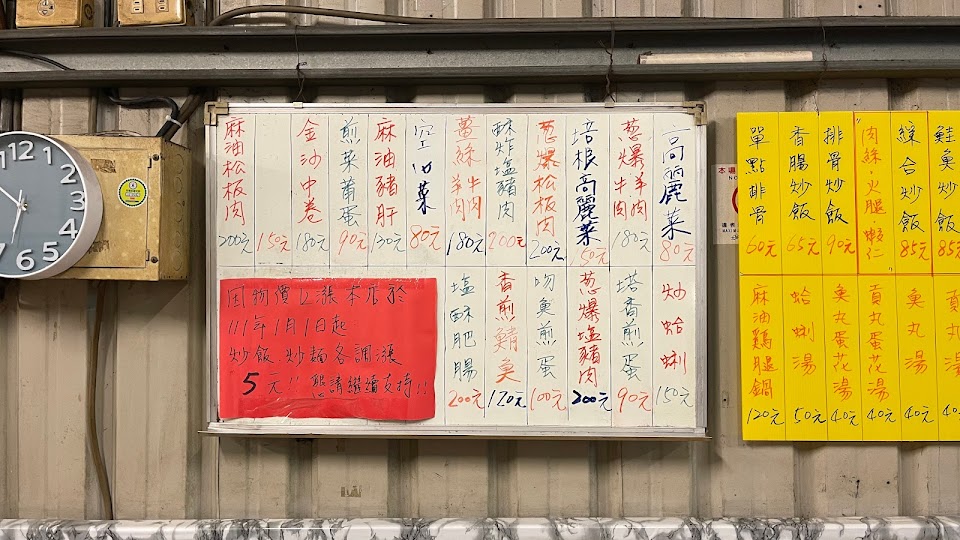 高麗菜 80元
葱爆羊肉牛肉 180元
培根高麗菜 150元
葱爆松板肉 200元
酥炸塩豬肉 200元
薑絲羊肉牛肉 180元
空心菜 80元
麻油豬肝 130元
煎菜莆蛋 90元
金沙中卷 180元
150元
麻油松板肉 200元
炒蛤蜊 150元
塔香煎蛋 90元
葱爆塩豬肉 200元
吻魚煎蛋 100元
香煎鯖魚 120元
塩酥肥腸 200元
因物價上漲本店於
111年1月1日起
炒飯、炒麵各調漲
5元!! 懇請繼續支持!!
鮭魚炒飯 85元
綜合炒飯 85元
肉絲·火腿·蝦仁
排骨炒飯 90元
香腸炒飯 65元
單點排骨 60元
40元
魚丸湯 40元
貢丸蛋花湯 40元
魚丸蛋花湯 40元
蛤蜊湯 50元
麻油鷄腿鍋 120元
12
1
2
3
4
5
6